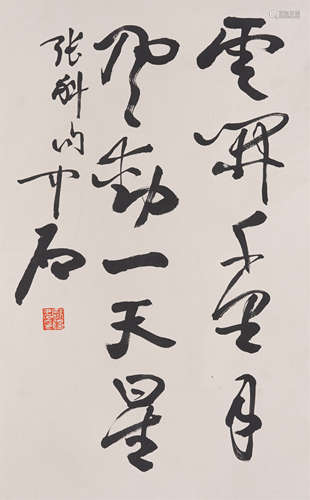 雲開千里月
風動一天星
張斛句 中石